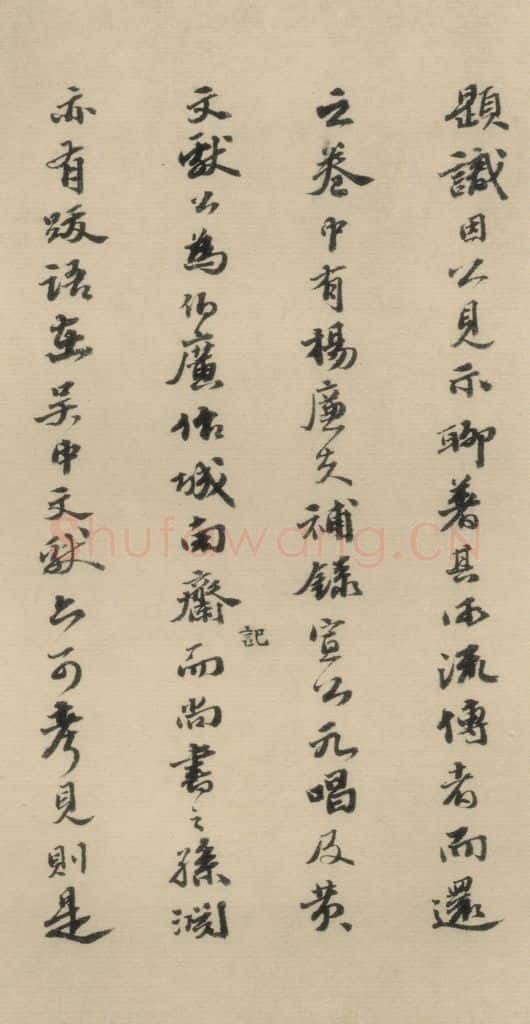 題識因以見示聊著其所流傳者而還
之卷中有楊廉夫補錄宣公元唱及黃
文獻公為伯廣作城南齋記而尚書之孫潤
亦有跋語在吳中文獻上可考見則是
shufawang.CN